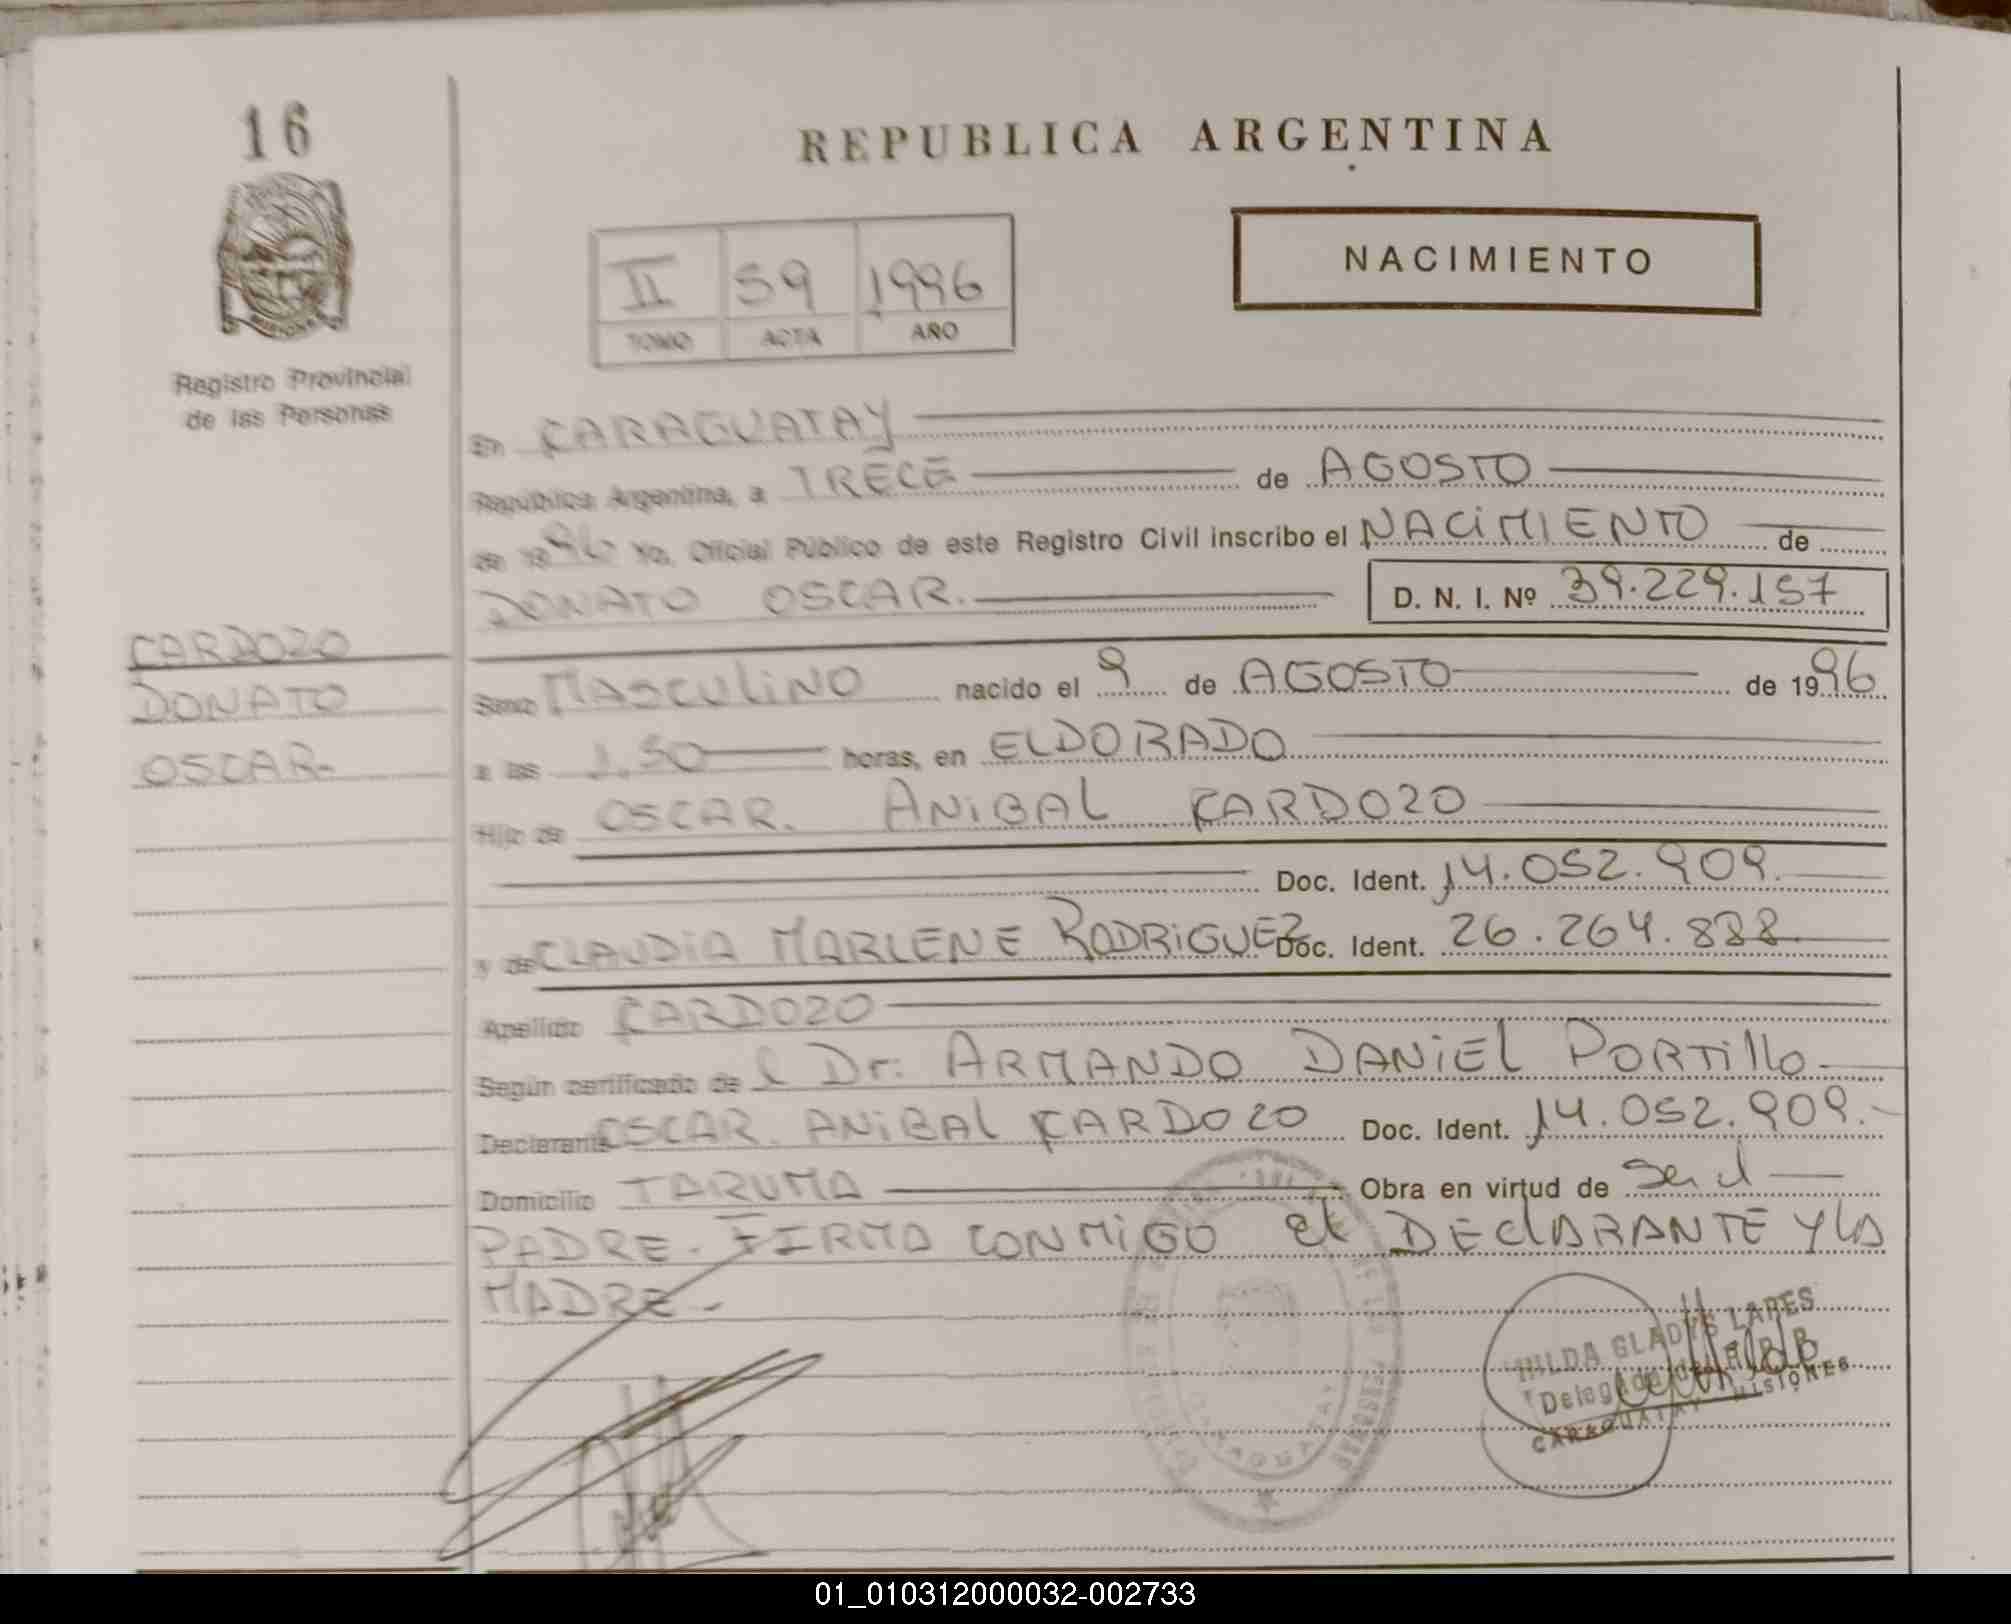 16
REPUBLICA ARGENTINA
NACIMIENTO
II 59 1996
TOMO ACTA AÑO
Registro Provincial
de las Personas
En CARAGUATAY
República Argentina, a TRECE de AGOSTO
de 1996 Yo, Oficial Público de este Registro Civil inscribo el NACIMIENTO de
DONATO OSCAR. D. N. I. Nº 39.229.157
CARDOZO
DONATO
OSCAR.
Sexo MASCULINO nacido el 9 de AGOSTO de 1996
a las 1.50 horas, en ELDORADO
Hijo de OSCAR. ANIBAL CARDOZO
Doc. Ident. 14.052.909.
y de CLAUDIA MARLENE RODRIGUEZ Doc. Ident. 26.264.888
Apellido CARDOZO
Según certificado de l Dr. ARMANDO DANIEL PORTILLO
Declarante OSCAR. ANIBAL CARDOZO Doc. Ident. 14.052.909.-
Domicilio TARUMA Obra en virtud de ser el
PADRE. FIRMA CONMIGO El DEClARANTE Y LA
MADRE.-
HILDA GLADYS LARES
CARAGUATAY MISIONES
CARAGUATAY
01_010312000032-002733